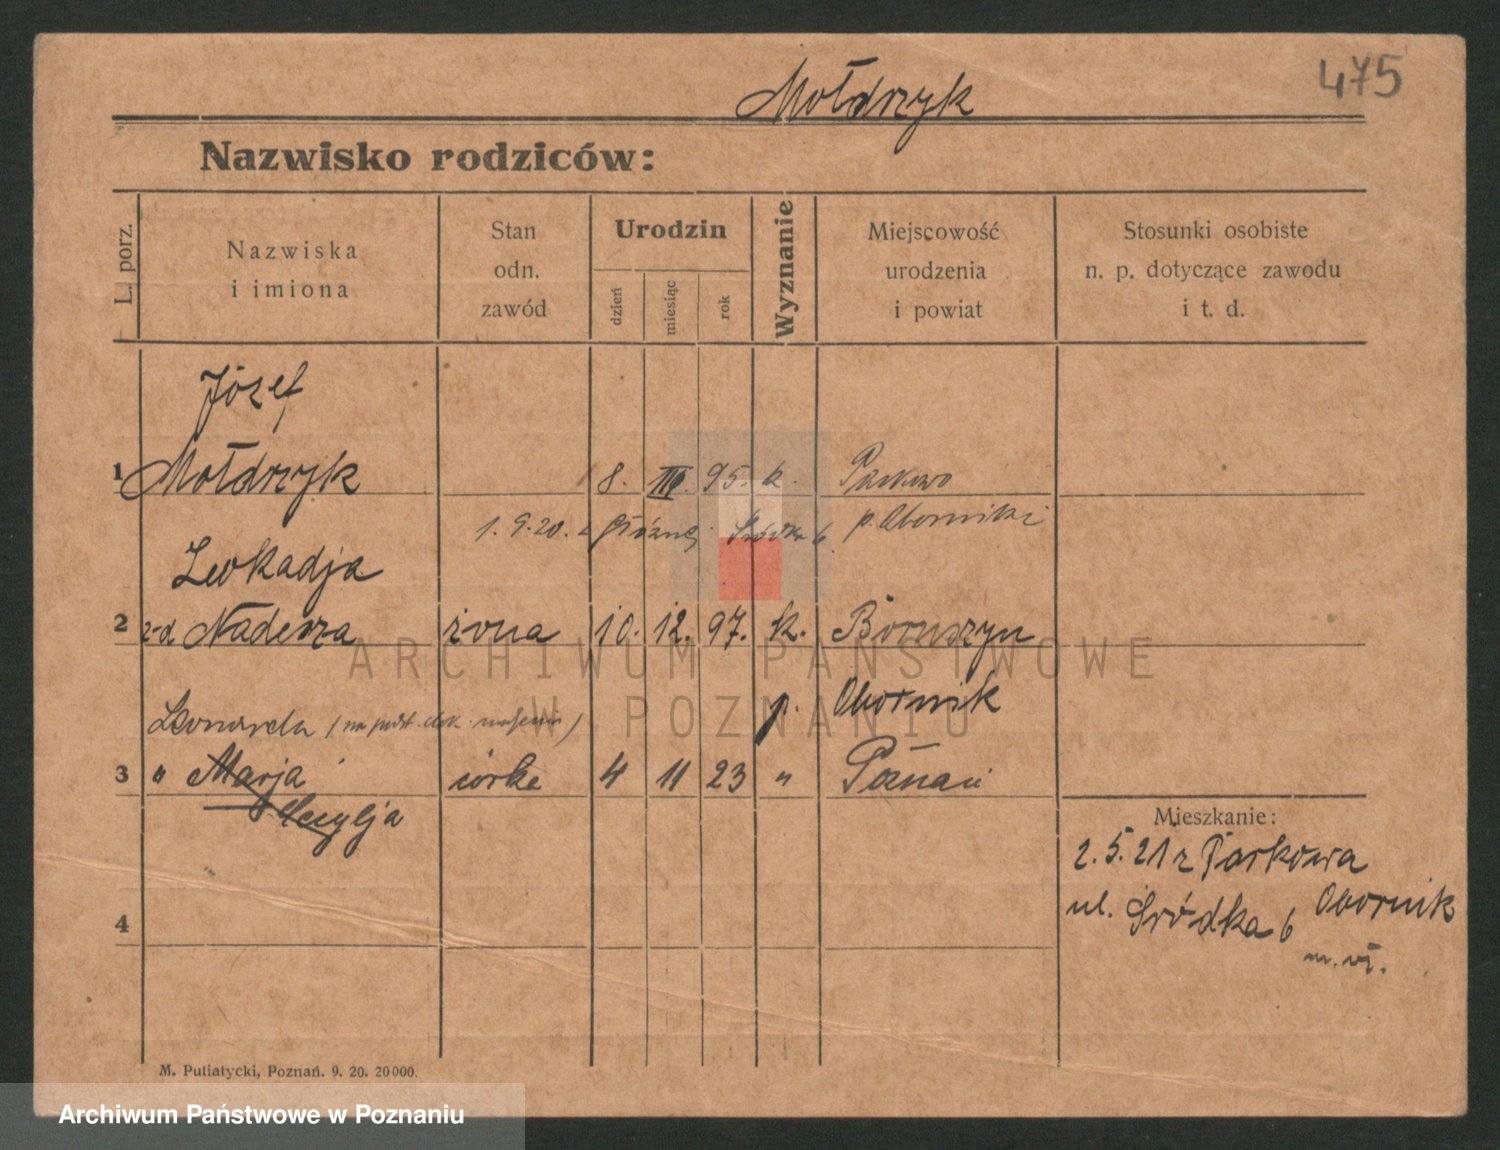 Mołdrzyk
475
Nazwisko rodziców:
L. porz.
Nazwiska i imiona
Stan odn. zawód
Urodzin
dzień
miesiąc
rok
Wyznanie
Miejscowość urodzenia i powiat
Stosunki osobiste n. p. dotyczące zawodu i t. d.
Józef
1 Mołdrzyk 8. III. 95. k. Parkowo
1.9.20. z Głównej Śródka 6. p. Oborniki
Leokadja
2 z-d żona 10. 12. 97. k. Boruszyn
p. Obornik
Leonarda
3 " Marja córka 4 11 23 " Poznań
Cecylja
Mieszkanie:
2.5.21 z Parkowa
ul. Śródka 6 Obornik
4
M. Putiatycki, Poznań. 9. 20. 20000.
ARCHIWUM PAŃSTWOWE
W POZNANIU
Archiwum Państwowe w Poznaniu